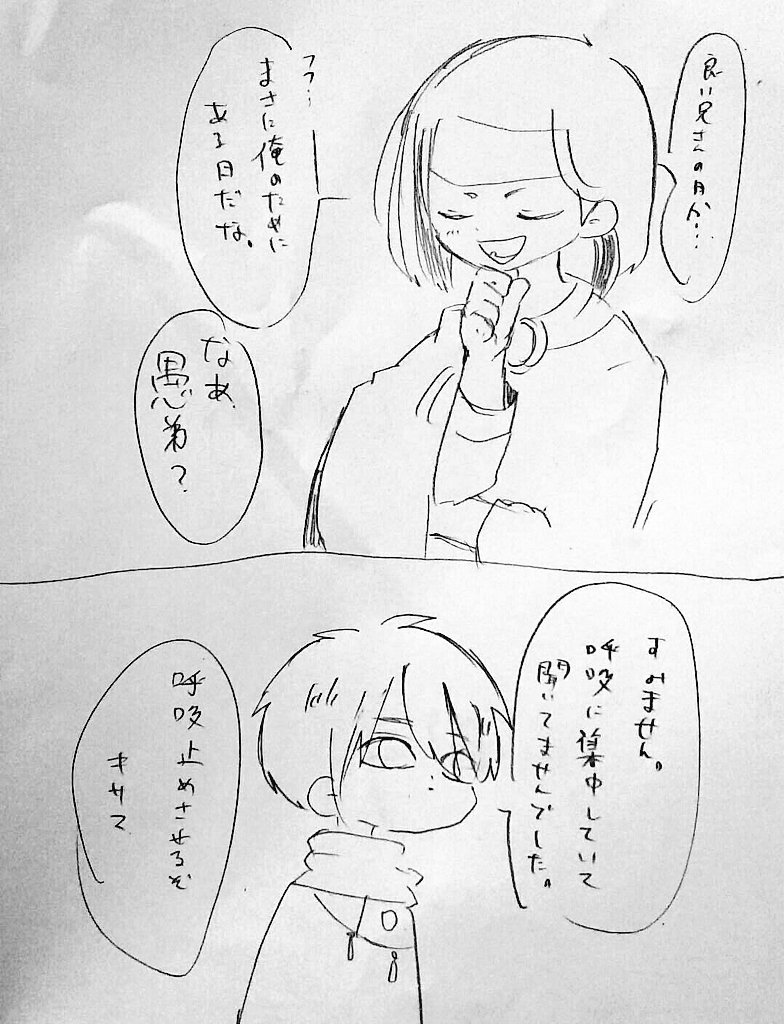 良い兄さんの日か…
フフ…
まさに俺のために
ある日だな。
なあ
愚弟?
すみません。
呼吸に集中していて
聞いてませんでした。
呼吸止めさせるぞ
キサマ